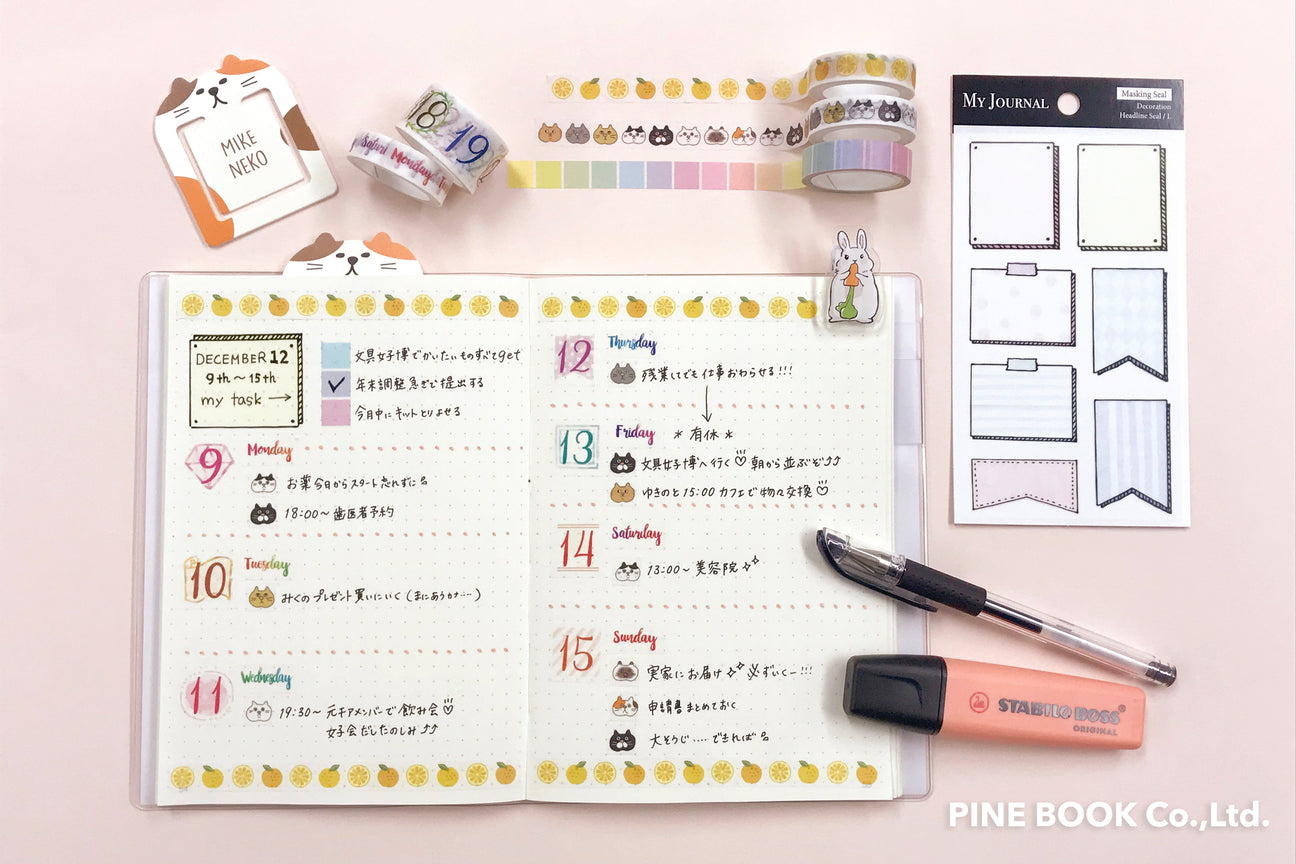 MIKE
NEKO
Saturd Monday Tu
18 19
MY JOURNAL
Masking Seal
Decoration
Headline Seal / L
DECEMBER 12
9th～15th
my task →
文具女子博でかいたいものすべてget
✓ 年末調整急ぎで提出する
今月中にキットとりよせる
9 Monday
お薬今日からスタート忘れずに
18:00～歯医者予約
10 Tuesday
みくのプレゼント買いにいく(まにあうかナ……)
11 Wednesday
19:30～ 元チアメンバーで飲み会♡
女子会だしたのしみ⤴⤴
12 Thursday
残業してでも仕事おわらせる!!!
13 Friday ＊有休＊
文具女子博へ行く♡朝から並ぶぞ⤴⤴
ゆきのと15:00カフェで物々交換♡
14 Saturday
13:00～美容院✧✧
15 Sunday
実家にお届け✧✧必ずいくー!!!
申請書まとめておく
大そうじ……できれば
STABILO BOSS
ORIGINAL
PINE BOOK Co.,Ltd.